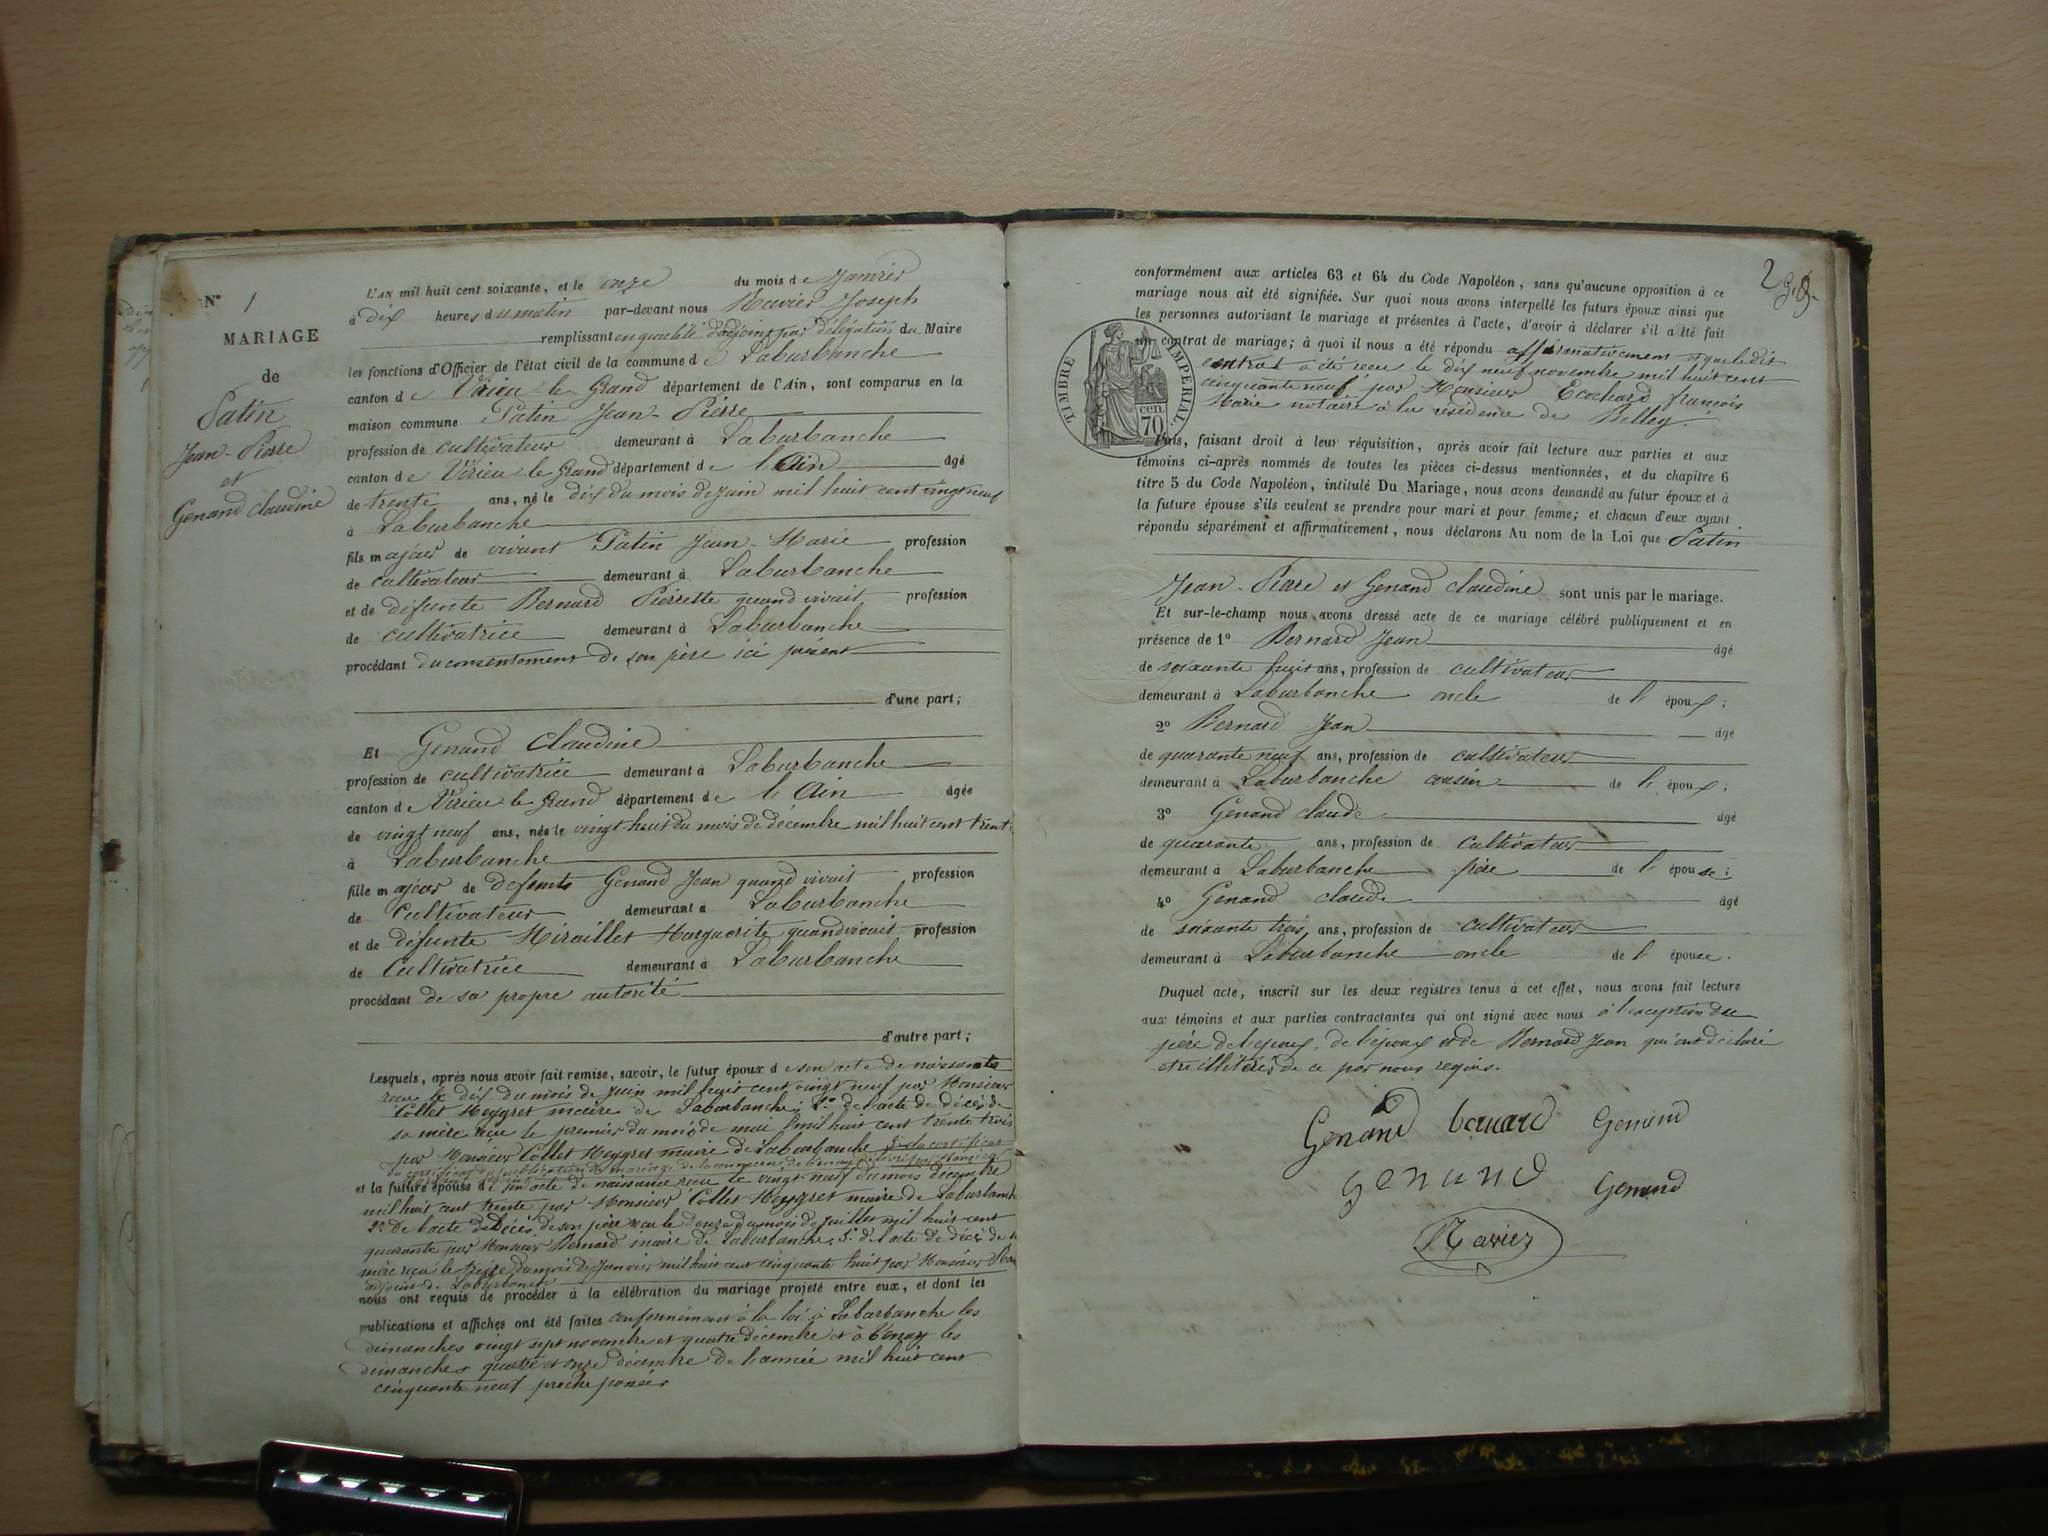 N° 1
MARIAGE
de
Patin
Jean-Pierre
et
Genand Claudine
L'AN mil huit cent soixante, et le onze du mois de Janvier
à dix heures du matin par-devant nous Ravier Joseph
remplissant en qualité d'adjoint par délégation du Maire
les fonctions d'Officier de l'état civil de la commune de Laburbanche
canton de Virieu le Grand département de l'Ain, sont comparus en la
maison commune Patin Jean-Pierre
profession de cultivateur demeurant à Laburbanche
canton de Virieu le Grand département de l'Ain âgé
de trente ans, né le dix du mois de Juin mil huit cent vingt neuf
à Laburbanche
fils majeur de vivant Patin Jean-Marie profession
de cultivateur demeurant à Laburbanche
et de défunte Bernard Pierrette quand vivait profession
de cultivatrice demeurant à Laburbanche
procédant du consentement de son père ici présent
d'une part;
Et Genand Claudine
profession de cultivatrice demeurant à Laburbanche
canton de Virieu le Grand département de l'Ain âgée
de vingt neuf ans, née le vingt huit du mois de décembre mil huit cent trente
à Laburbanche
fille majeur de defunts Genand Jean quand vivait profession
de Cultivateur demeurant à Laburbanche
et de défunte Miraillet Marguerite quand vivait profession
de Cultivatrice demeurant à Laburbanche
procédant de sa propre autorité
d'autre part;
Lesquels, après nous avoir fait remise, savoir, le futur époux de son acte de naissance
recu le dix du mois de Juin mil huit cent vingt neuf par Monsieur
Collet Meygret maire de Laburbanche; 2° de l'acte de décès de
sa mère reçu le premier du mois de mai mil huit cent trente trois
par Monsieur Collet Meygret maire de Laburbanche 3° du certificat
de publication de mariage de la commune de Tenay
et la future épouse d son acte de naissance reçu le vingt neuf du mois décembre
mil huit cent trente par Monsieur Collet Meygret maire de Laburbanche
2° De l'acte de Décès de son père reçu le douze du mois de juillet mil huit cent
quarante par Monsieur Bernard maire de Laburbanche, 3° de l'acte de décès de
mère reçu le seize du mois de Janvier mil huit cent cinquante huit par Monsieur
adjoint de Laburbanche
nous ont requis de procéder à la célébration du mariage projeté entre eux, et dont les
publications et affiches ont été faites conformément à la loi à Laburbanche les
dimanches vingt sept novembre et quatre décembre et à Tenay les
dimanches quatre et onze décembre de l'année mil huit cent
cinquante neuf proche passée
2
conformément aux articles 63 et 64 du Code Napoléon, sans qu'aucune opposition à ce
mariage nous ait été signifiée. Sur quoi nous avons interpellé les futurs époux ainsi que
les personnes autorisant le mariage et présentes à l'acte, d'avoir à déclarer s'il a été fait
un contrat de mariage; à quoi il nous a été répondu affirmativement et que le dit
contrat a été recu le dix neuf novembre mil huit cent
cinquante neuf par Monsieur Ecochard françois
Marie notaire à la résidence de Belley.
TIMBRE IMPERIAL
70 cen.
Puis, faisant droit à leur réquisition, après avoir fait lecture aux parties et aux
témoins ci-après nommés de toutes les pièces ci-dessus mentionnées, et du chapitre 6
titre 5 du Code Napoléon, intitulé Du Mariage, nous avons demandé au futur époux et à
la future épouse s'ils veulent se prendre pour mari et pour femme; et chacun d'eux ayant
répondu séparément et affirmativement, nous déclarons Au nom de la Loi que Patin
Jean-Pierre et Genand Claudine sont unis par le mariage.
Et sur-le-champ nous avons dressé acte de ce mariage célébré publiquement et en
présence de 1° Bernard Jean âgé
de soixante huit ans, profession de cultivateur
demeurant à Laburbanche oncle de l'époux;
2° Bernard Jean âgé
de quarante neuf ans, profession de cultivateur
demeurant à Laburbanche cousin de l'époux;
3° Genand claude âgé
de quarante ans, profession de cultivateur
demeurant à Laburbanche frère de l'épouse;
4° Genand claude âgé
de soixante trois ans, profession de cultivateur
demeurant à Laburbanche oncle de l'épouse.
Duquel acte, inscrit sur les deux registres tenus à cet effet, nous avons fait lecture
aux témoins et aux parties contractantes qui ont signé avec nous à l'exception du
père de l'epoux, de l'époux et de Bernard Jean qui ont déclaré
etre illitérés de ce par nous requis.
Genand bernard Genand
genand Genand
Ravier